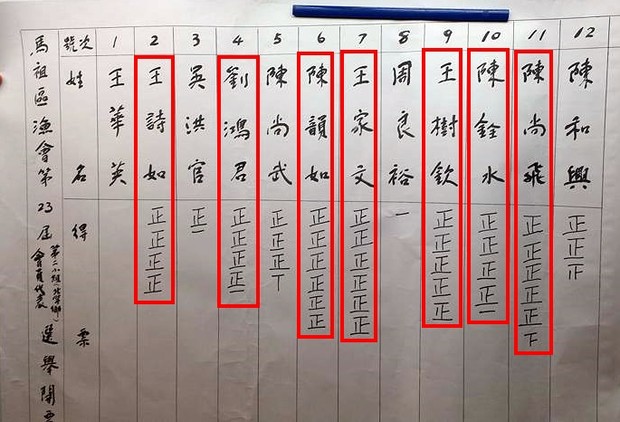 馬祖區漁會第23屆
第二小組(北竿鄉)
會員代表
選舉開票
號次 1 2 3 4 5 6 7 8 9 10 11 12
姓名
王華英
王詩如
吳洪官
劉鴻君
陳尚武
陳韻如
王家文
周良裕
王樹欽
陳銓水
陳尚飛
陳和興
得票
正正正正
正一
正正正正
一
正正正正正
正正正